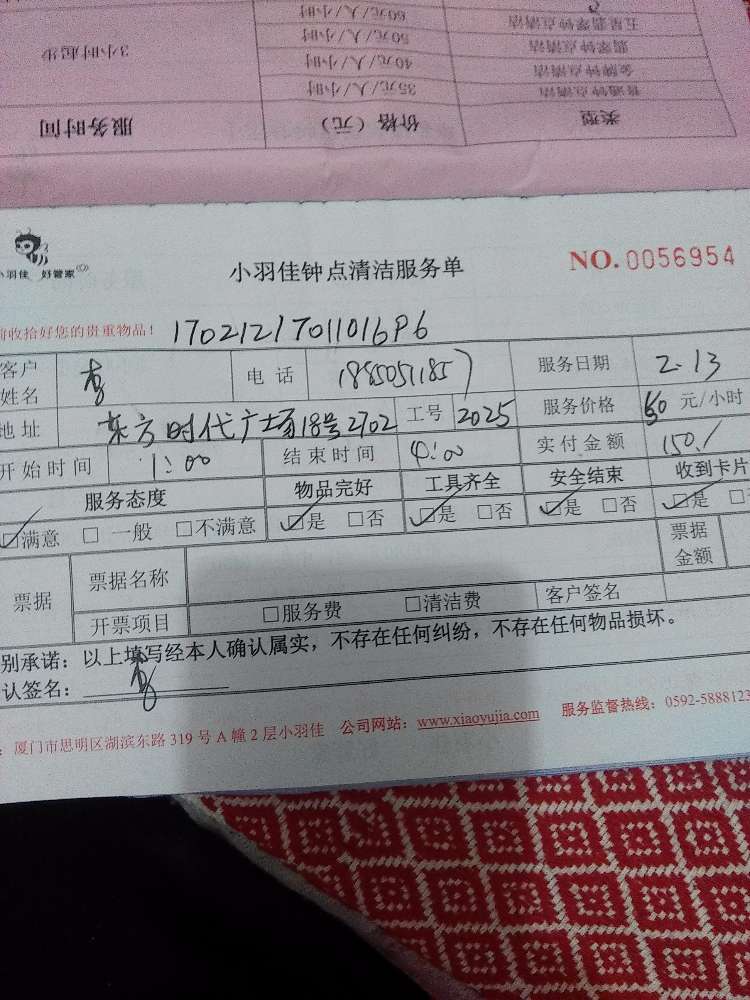 五星翡翠钟点清洁 60元/人/小时
翡翠钟点清洁 50元/人/小时
金牌钟点清洁 40元/人/小时
普通钟点清洁 35元/人/小时
3小时起步
类型 价格（元） 服务时间
小羽佳 好管家
小羽佳钟点清洁服务单 NO.0056954
前收拾好您的贵重物品！ 17021217011016P6
客户姓名 电话 1885051857 服务日期 2.13
地址 东方时代广场18号2702 工号 2025 服务价格 50 元/小时
开始时间 1:00 结束时间 4:00 实付金额 150./
服务态度 物品完好 工具齐全 安全结束 收到卡片
☑满意 □一般 □不满意 ☑是 □否 ☑是 □否 ☑是 □否 ☑是 □
票据 票据名称 票据金额
开票项目 □服务费 □清洁费 客户签名
别承诺：以上填写经本人确认属实，不存在任何纠纷，不存在任何物品损坏。
认签名：
：厦门市思明区湖滨东路319号A幢2层小羽佳 公司网站：www.xiaoyujia.com 服务监督热线：0592-5888123